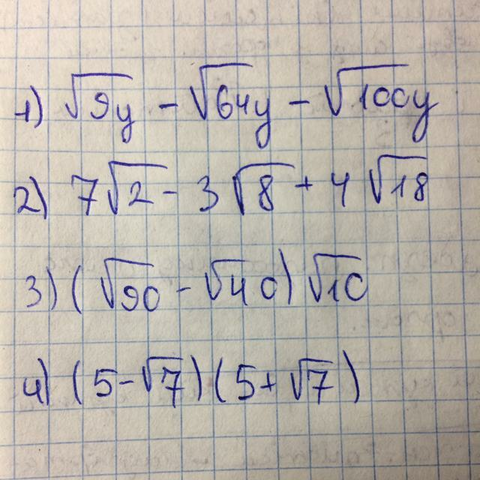 1) √9y − √64y − √100y
2) 7√2 − 3√8 + 4√18
3) (√90 − √40)√10
4) (5−√7)(5+√7)